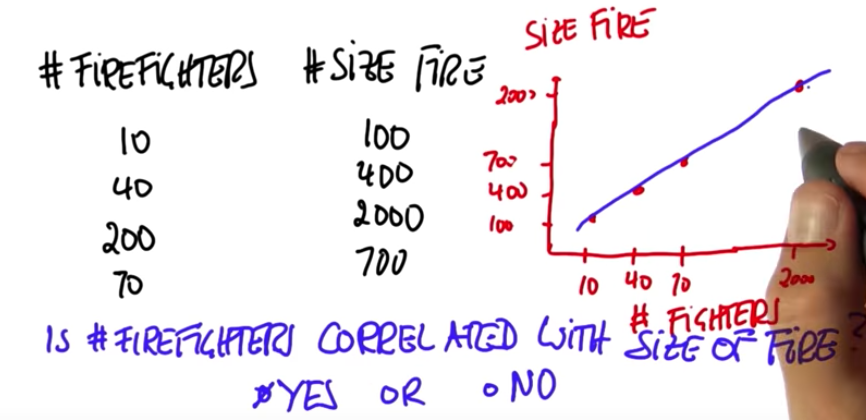 # FIREFIGHTERS
# SIZE FIRE
10 100
40 400
200 2000
70 700
SIZE FIRE
2000
700
400
100
10 40 70 2000
# FIGHTERS
IS # FIREFIGHTERS CORRELATED WITH SIZE OF FIRE?
YES OR NO